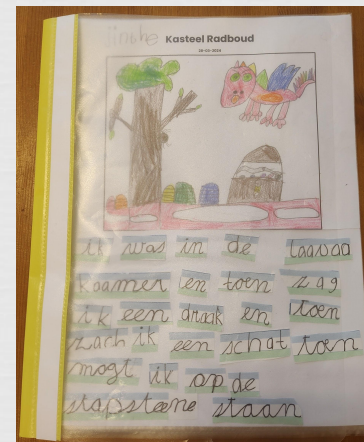 jinthe Kasteel Radboud
ik was in de laavaa
kaamer en toen zag
ik een draak en toen
zach ik een schat toen
mogt ik op de
stapsteene staan